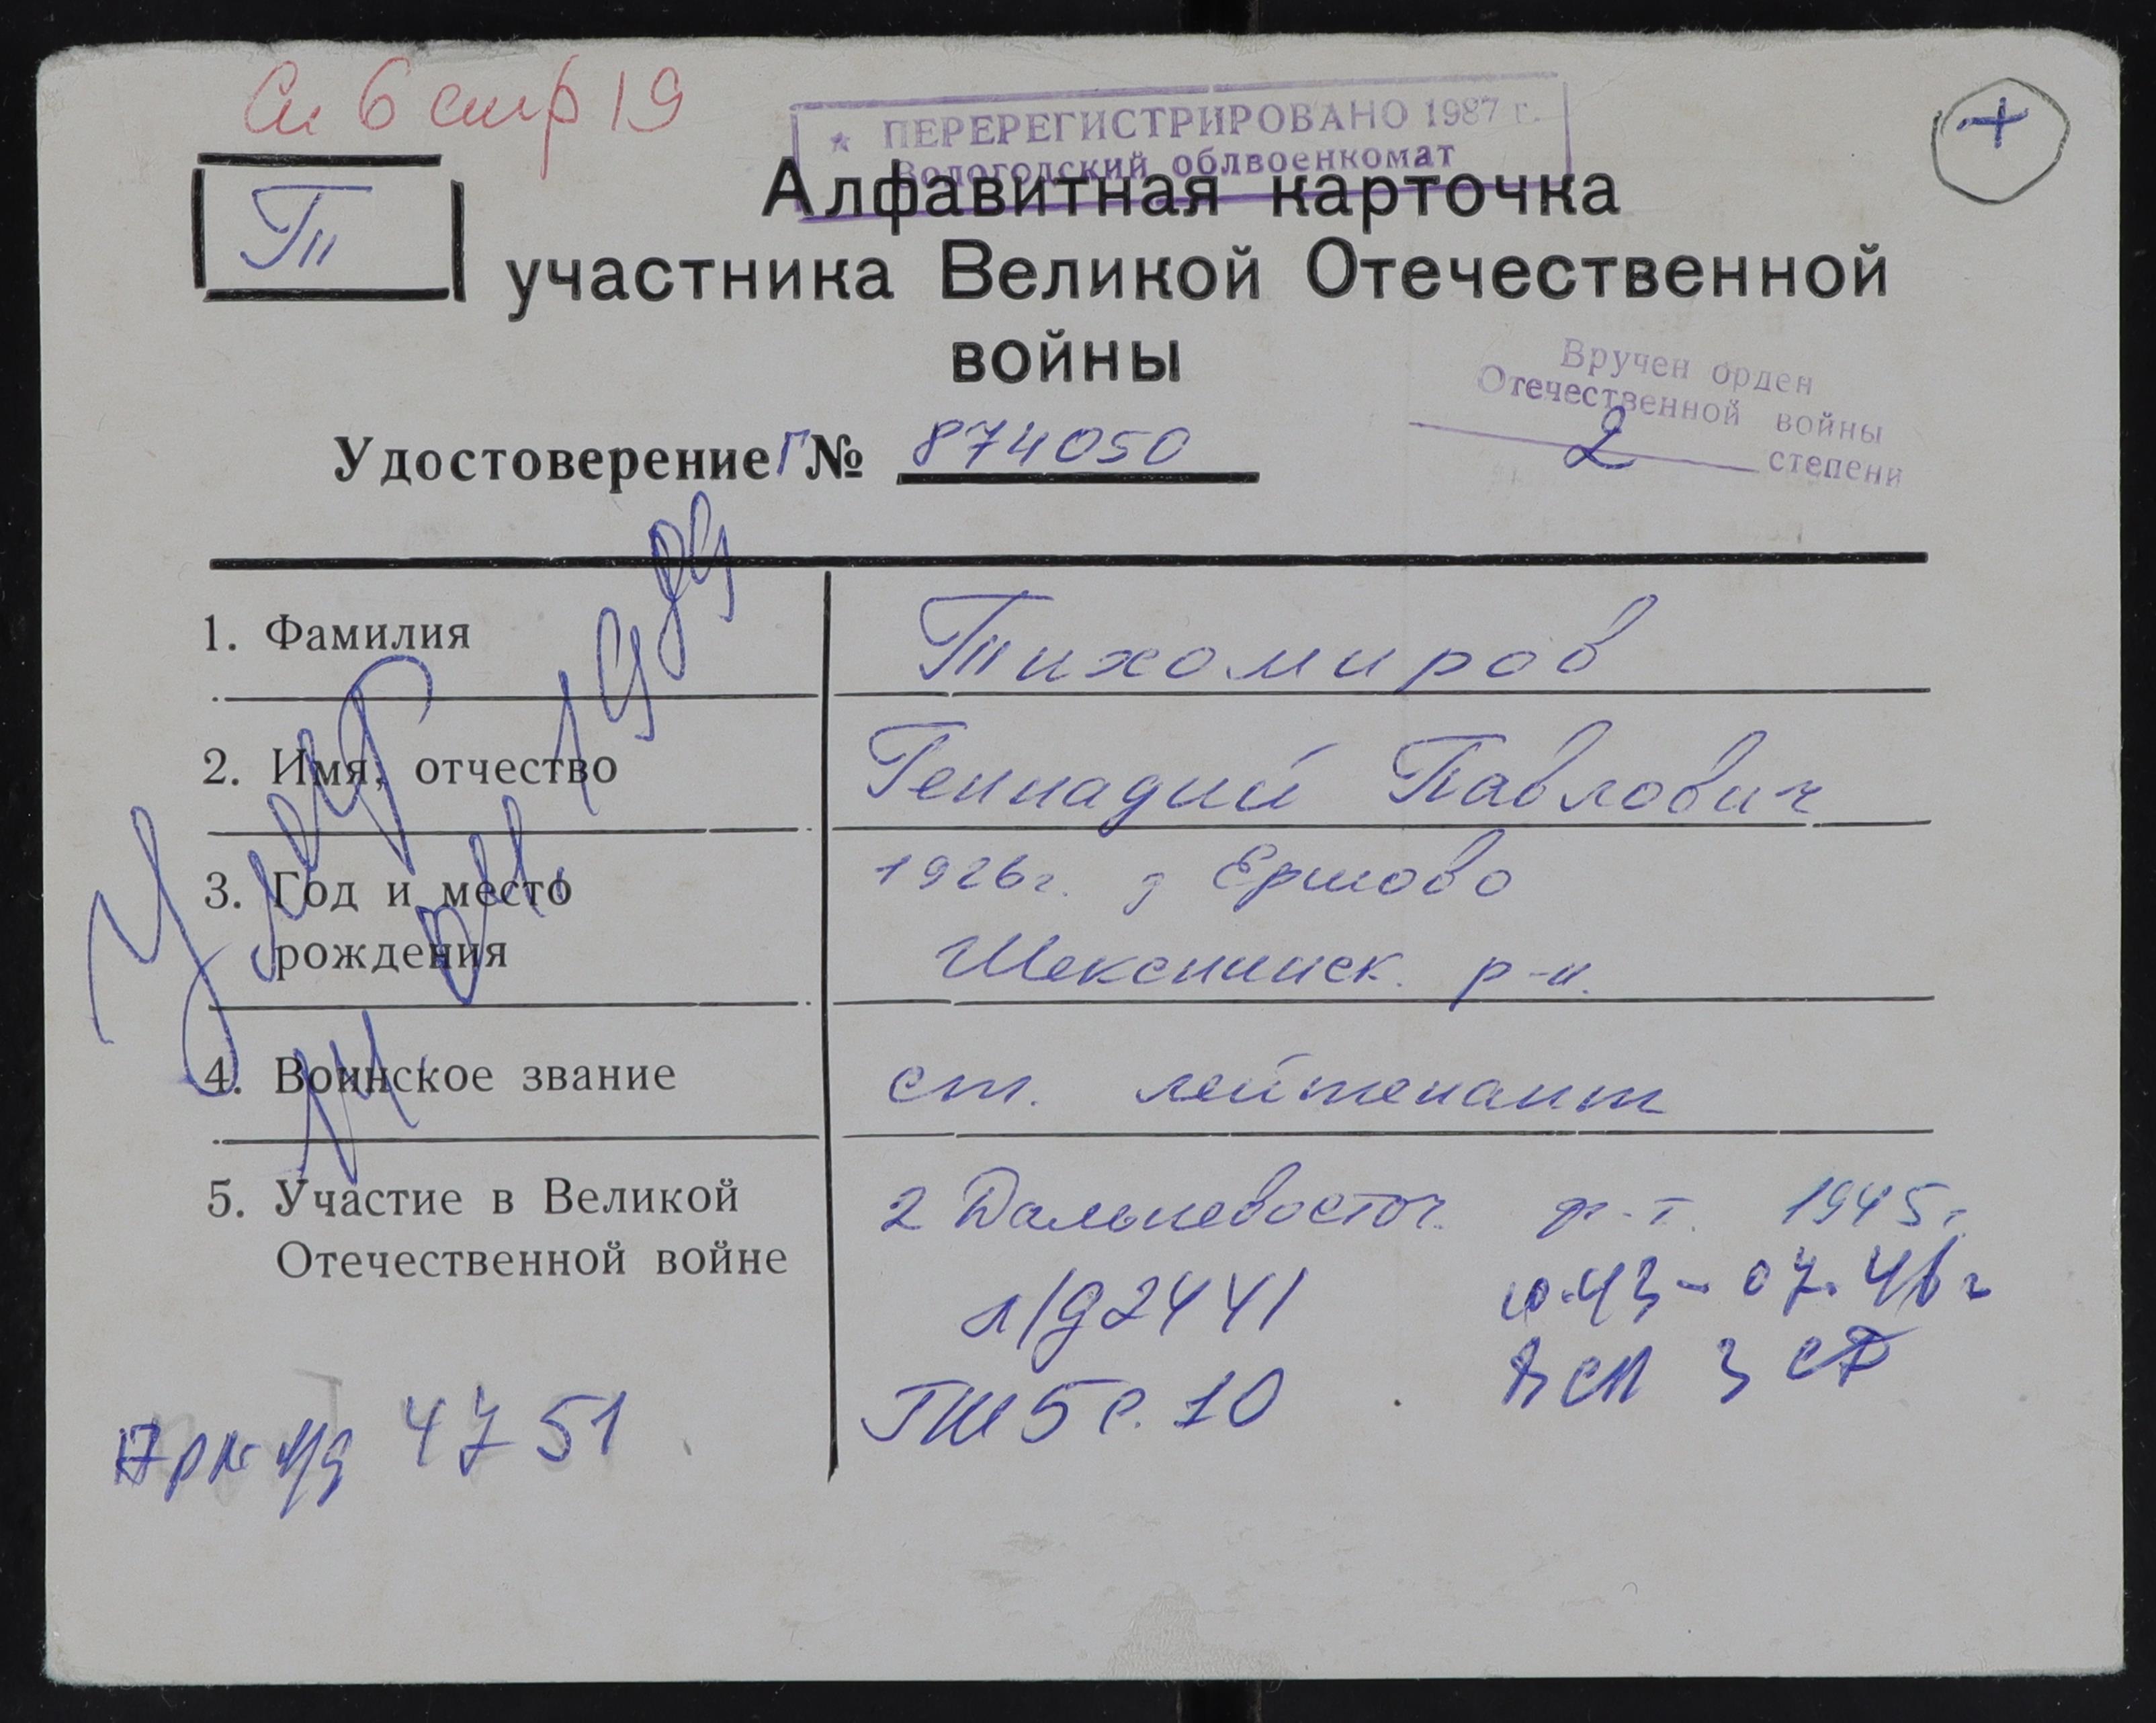 Сп 6 стр 19
★ ПЕРЕРЕГИСТРИРОВАНО 1987 г.
Вологодский облвоенкомат
+
Т
Алфавитная карточка
участника Великой Отечественной
войны
Вручен орден
Отечественной войны
2 степени
Удостоверение Г № 874050
1. Фамилия
Тихомиров
2. Имя, отчество
Геннадий Павлович
3. Год и место
рождения
1926г. д Ершово
Шекснинск. р-н.
4. Воинское звание
ст. лейтенант
Умер
5. Участие в Великой
Отечественной войне
2 Дальневосточ. ф-т. 1945г
л/д 2441
10.43 - 07.46 г
ГШ 5 с. 10
3 СФ
4751